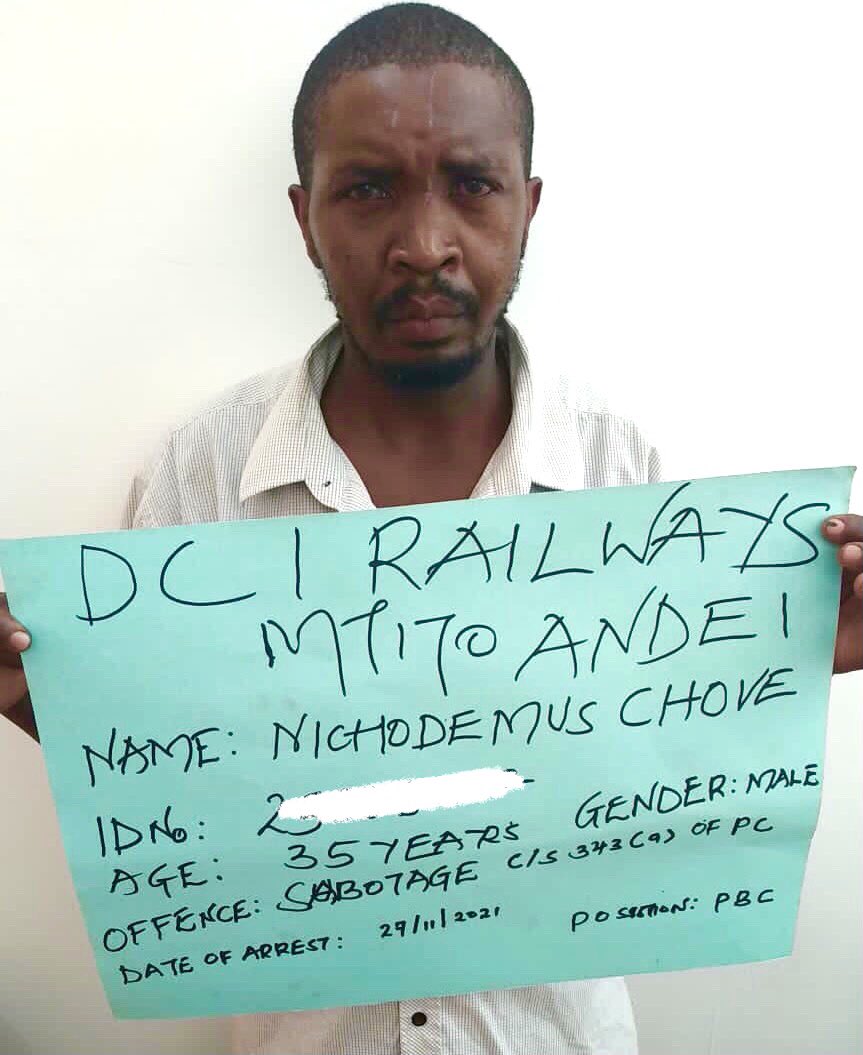 DCI RAILWAYS
MTITO ANDEI
NAME: NICHODEMUS CHOVE
ID No: 2
AGE: 35 YEARS GENDER: MALE
OFFENCE: SABOTAGE C/S 343(a) OF PC
DATE OF ARREST: 29/11/2021 POSITION: PBC